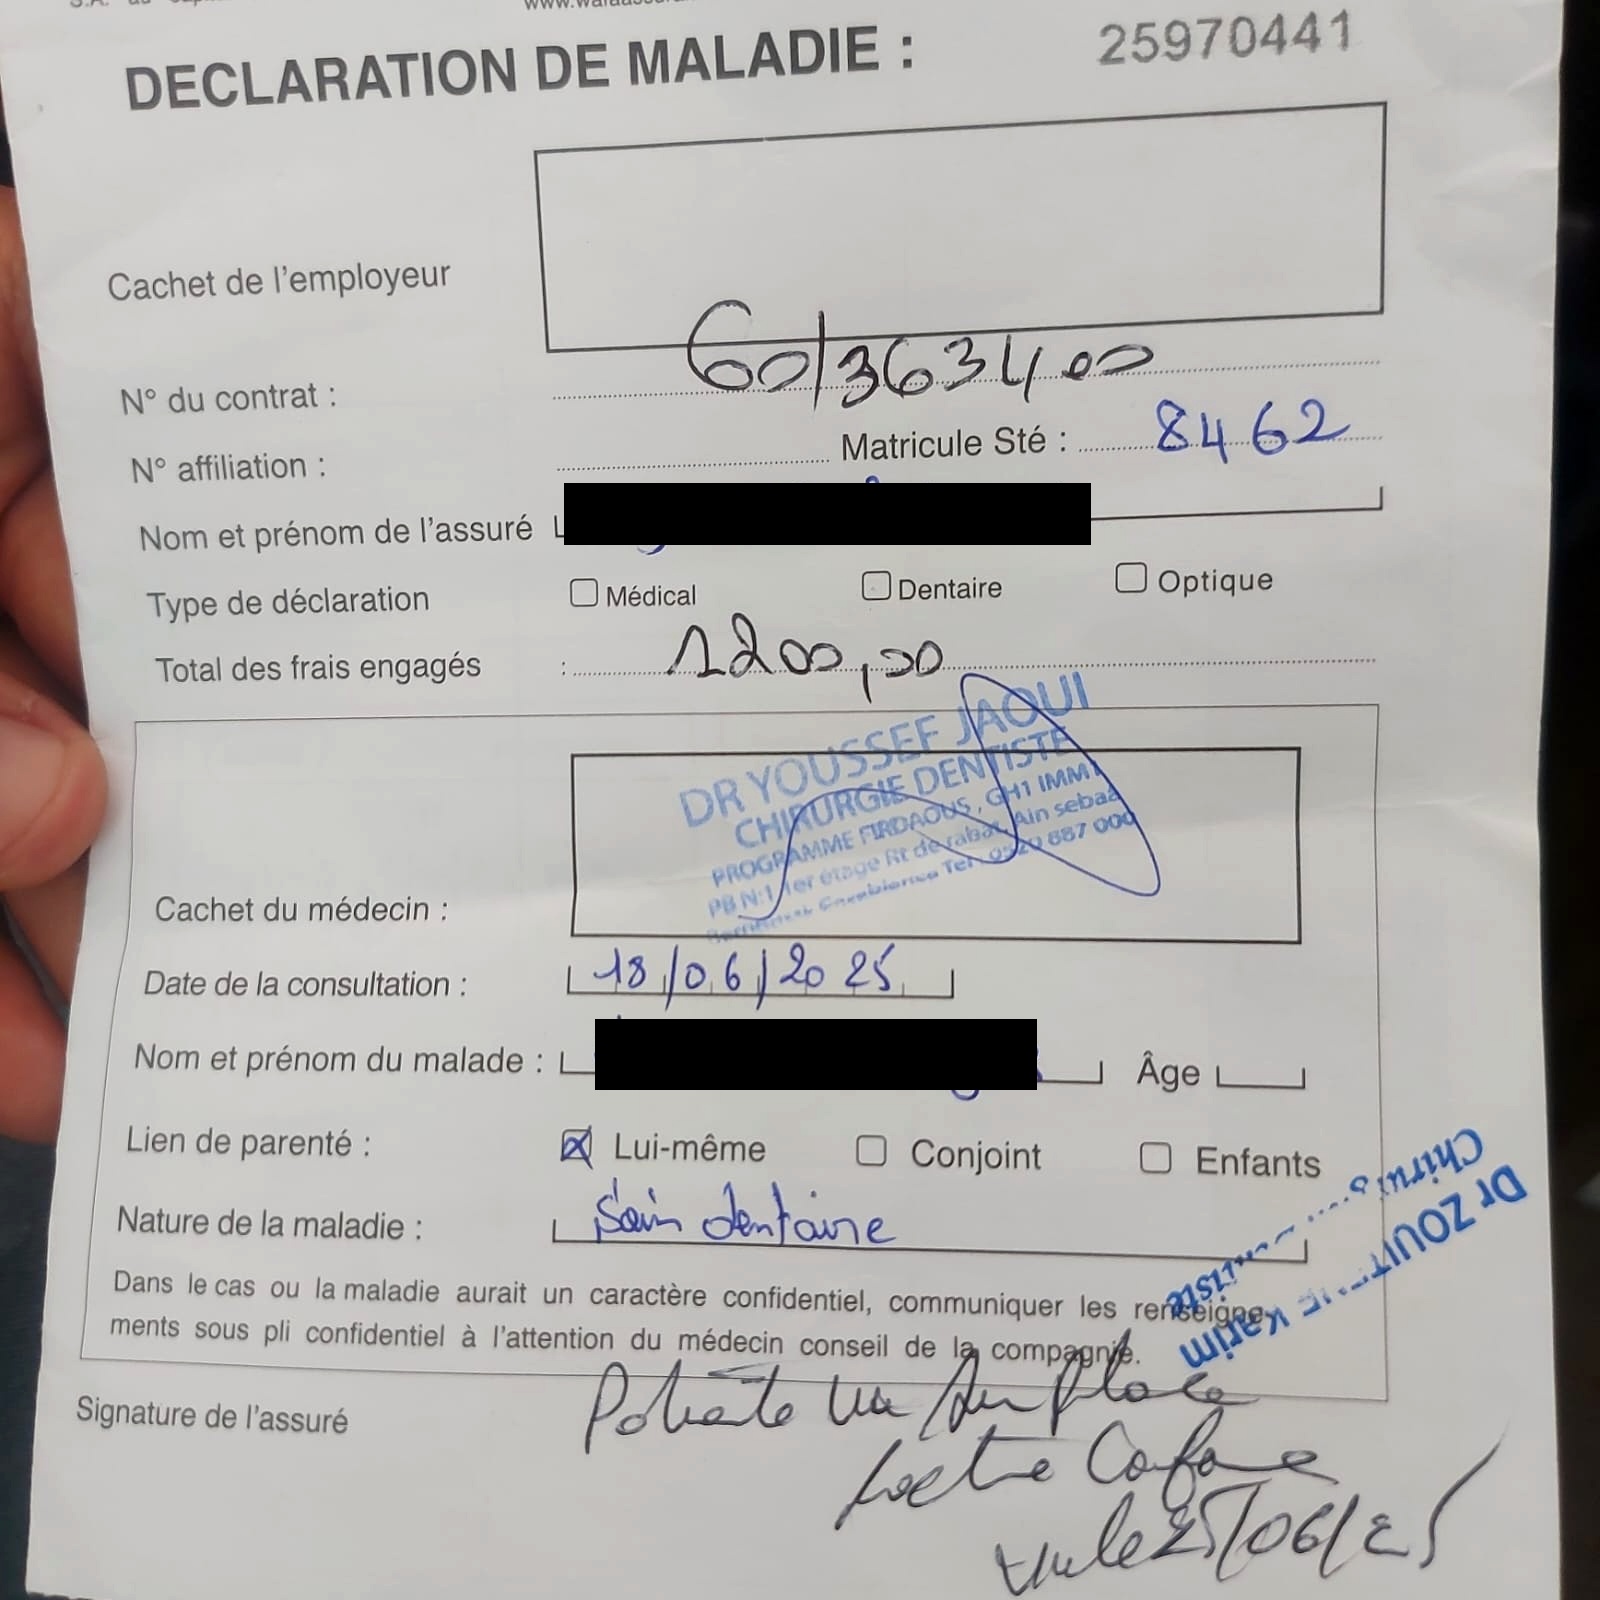 DECLARATION DE MALADIE : 25970441
Cachet de l'employeur
N° du contrat : 60/3634,00
N° affiliation : Matricule Sté : 8462
Nom et prénom de l'assuré
Type de déclaration Médical Dentaire Optique
Total des frais engagés : 1200,00
DR YOUSSEF JAOUI
CHIRURGIE DENTISTE
PROGRAMME FIRDAOUS, GH1 IMM1
PB N:1 1er étage Rt de rabat, Ain sebaa
Casablanca Tel: 0520 887 000
Cachet du médecin :
Date de la consultation : 18/06/2025
Nom et prénom du malade : Âge
Lien de parenté : Lui-même Conjoint Enfants
Nature de la maladie : Soin dentaire
Dans le cas ou la maladie aurait un caractère confidentiel, communiquer les renseigne-
ments sous pli confidentiel à l'attention du médecin conseil de la compagnie.
Dr Karim
Signature de l'assuré
25/06/25